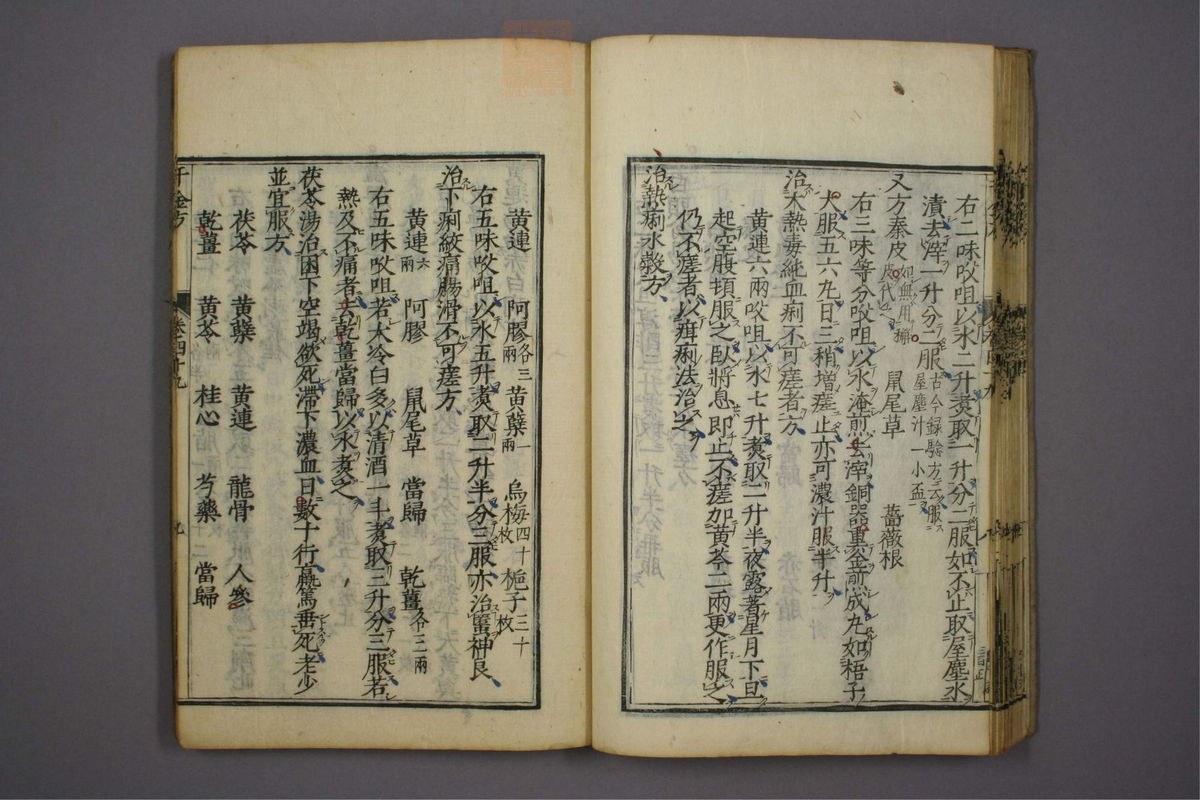 右二味㕮咀以水二升煑取一升分二服如不止取屋塵水
漬去滓一升分二服古今録驗方云服屋塵汁一小盃
又方秦皮如無用槲皮代之 鼠尾草 薔薇根
右三味等分㕮咀以水淹煎去滓銅器重釜煎成丸如梧子
大服五六丸日三稍增瘥止亦可濃汁服半升
治大熱毒純血痢不可瘥者方
黄連六兩㕮咀以水七升煑取二升半夜露著星月下旦
起空腹頓服之臥將息即止不瘥加黄芩二兩更作服之
仍不瘥者以疳痢法治之
治熱痢水穀方
黄連 阿膠各三兩 黄蘗一兩 烏梅四十枚 梔子三十枚
右五味㕮咀以水五升煑取二升半分三服亦治䘌神良
治下痢絞痛腸滑不可瘥方
黄連六兩 阿膠 鼠尾草 當歸 乾薑各三兩
右五味㕮咀若大冷白多以清酒一斗煑取三升分三服若
熱及不痛者去乾薑當歸以水煑之
茯苓湯治因下空竭欲死滯下濃血日數十行羸篤垂死老少
並宜服方
茯苓 黄蘗 黄連 龍骨 人參
乾薑 黄芩 桂心 芍藥 當歸
千金方
卷四十九
九